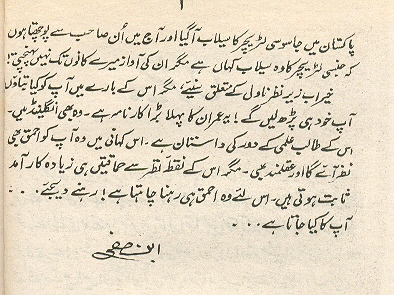 پاکستان میں جاسوسی لٹریچر کا سیلاب آ گیا اور آج میں اُن صاحب سے پوچھتا ہوں
کہ جنسی لٹریچر کا وہ سیلاب کہاں ہے مگر ان کی آواز میرے کانوں تک نہیں پہنچتی!
خیر اب زیر نظر ناول کے متعلق سنیئے! مگر اس کے بارے میں آپ کو کیا بتاؤں
آپ خود ہی پڑھ لیں گے! یہ عمران کا پہلا بڑا کارنامہ ہے۔ وہ بھی انگلینڈ میں۔
اس کے طالب علمی کے دور کی داستان ہے۔ اس کہانی میں وہ آپ کو احمق بھی
نظر آئے گا اور عقلمند بھی۔ مگر اس کے نقطہ نظر سے حماقتیں ہی زیادہ کارآمد
ثابت ہوتی ہیں۔ اس لئے وہ احمق ہی رہنا چاہتا ہے! رہنے دیجئے . . . .
آپ کا کیا جاتا ہے . . .
ابن صفی